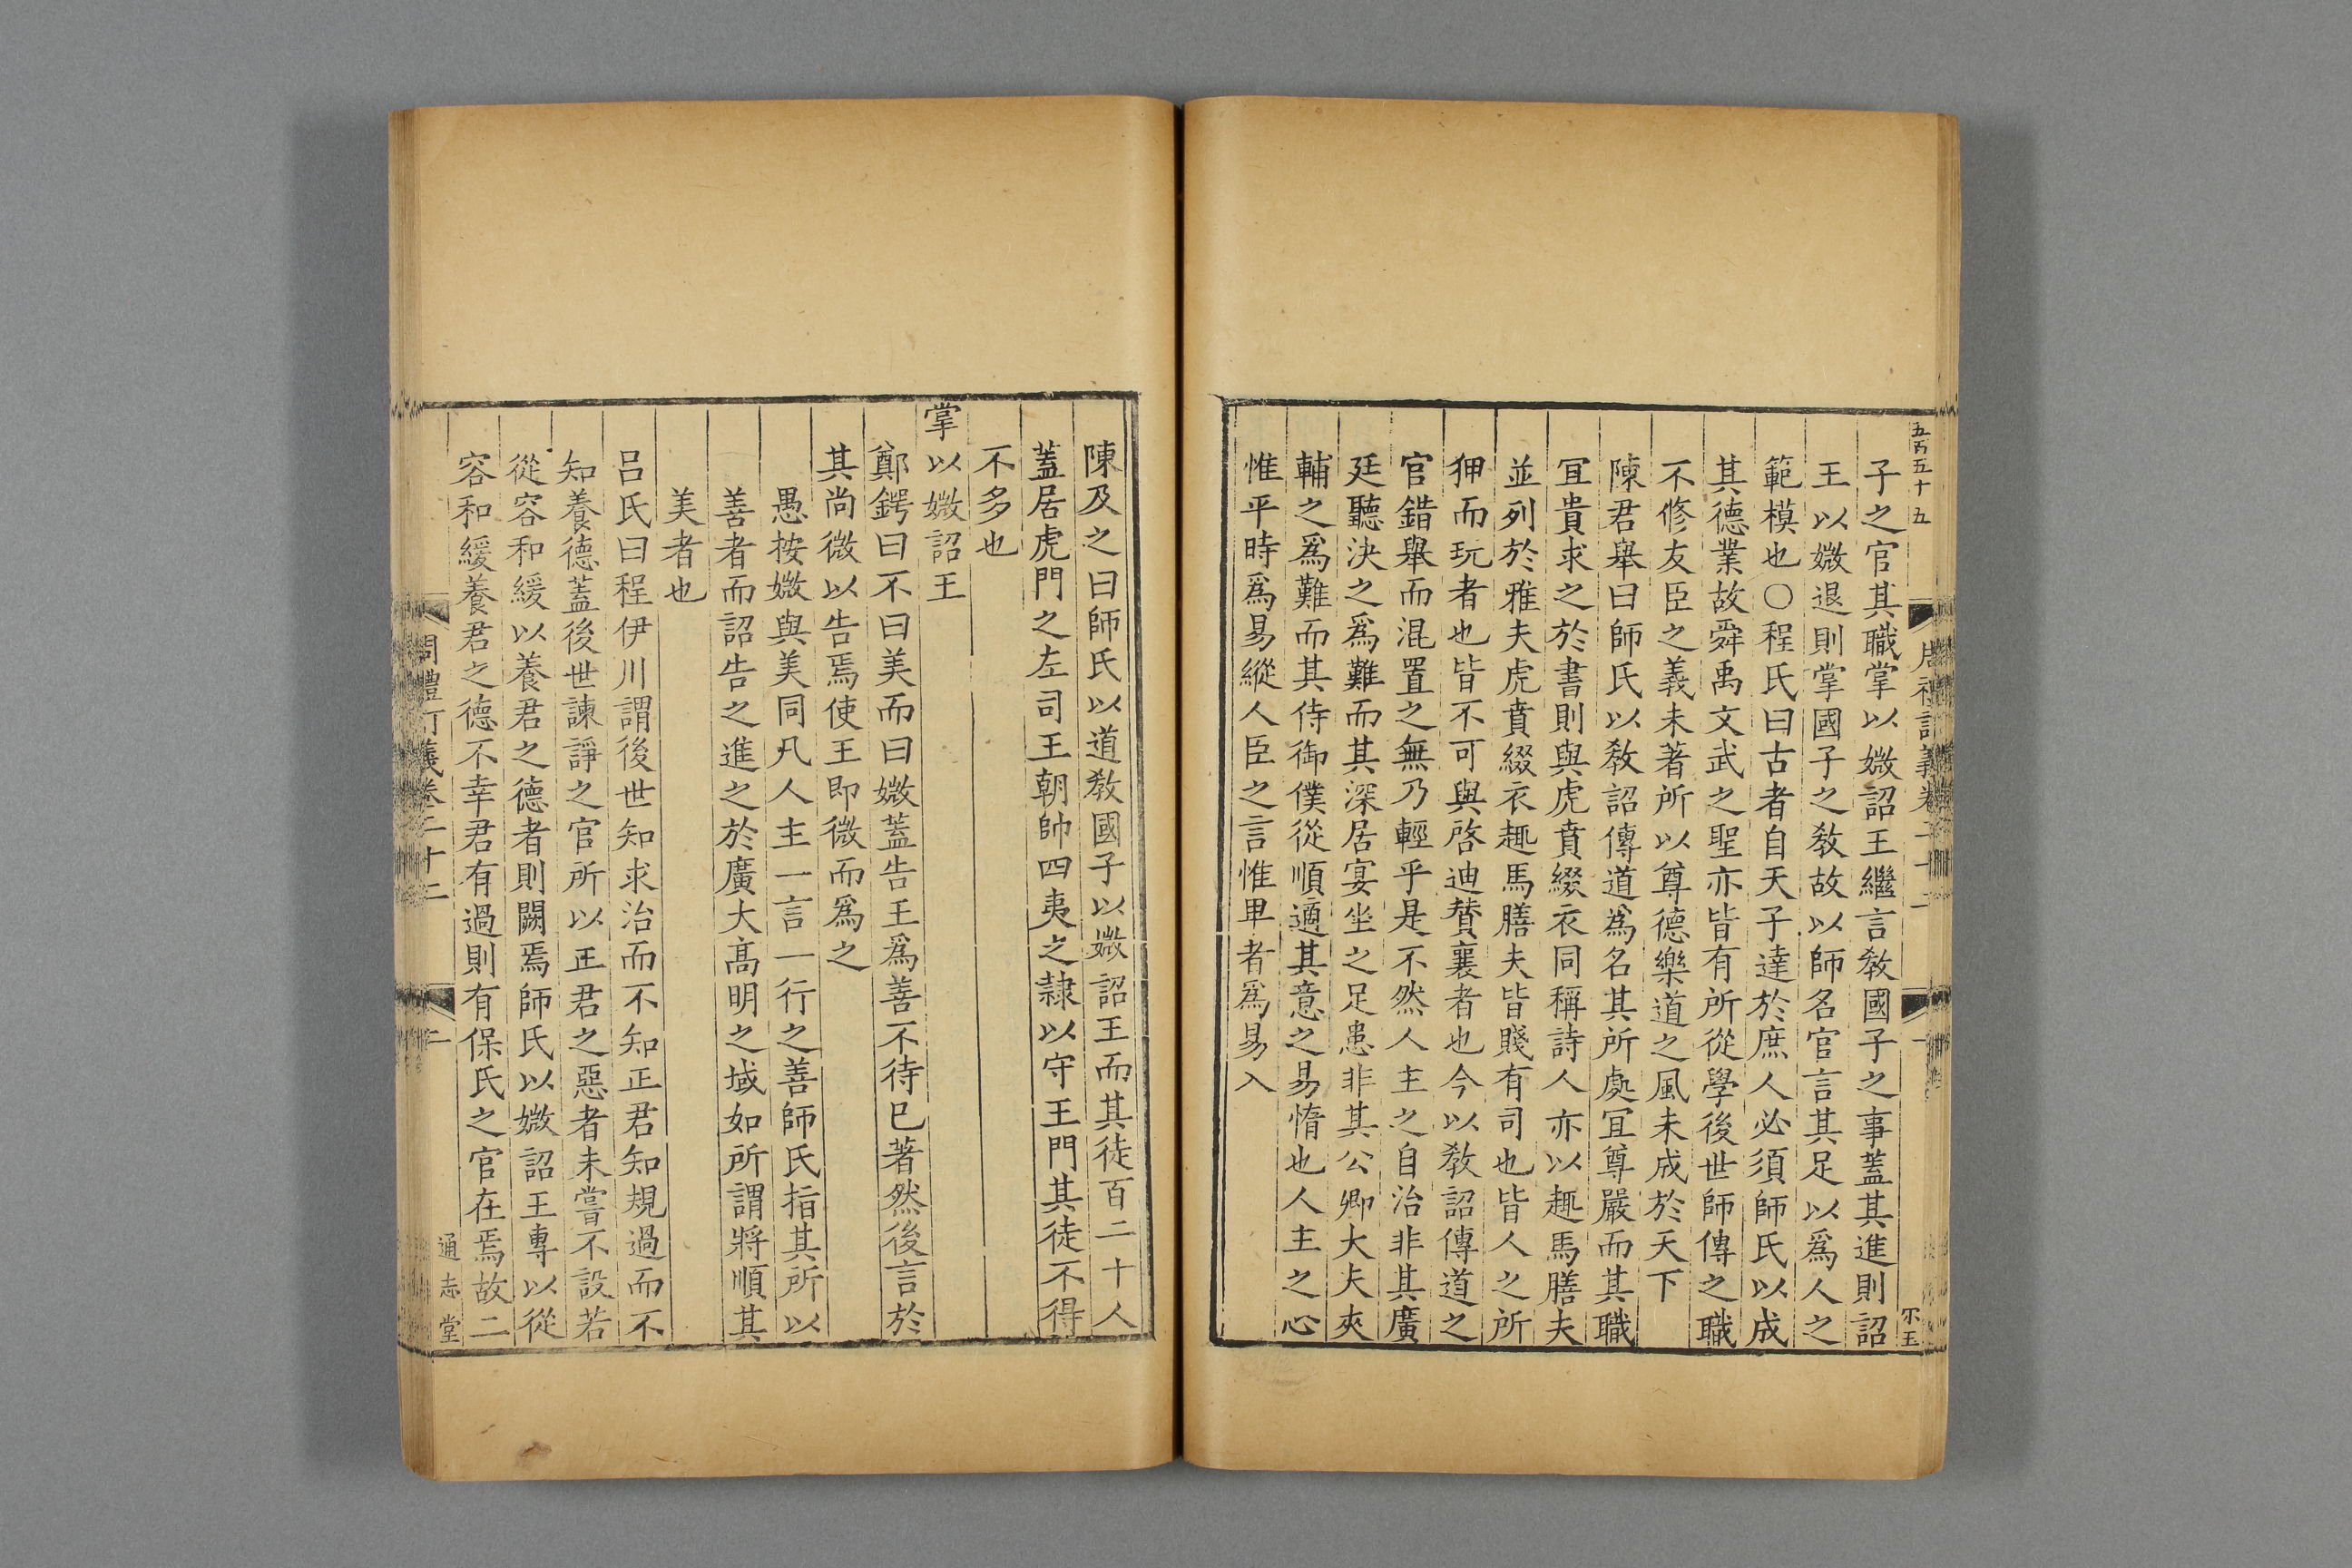 五百五十五
子之官其職掌以媺詔王繼言敎國子之事蓋其進則詔
王以媺退則掌國子之敎故以師名官言其足以爲人之
範模也○程氏曰古者自天子達於庶人必須師氏以成
其德業故舜禹文武之聖亦皆有所從學後世師傳之職
不修友臣之義未著所以尊德樂道之風未成於天下
陳君舉曰師氏以敎詔傳道爲名其所處宜尊嚴而其職
宜貴求之於書則與虎賁綴衣同稱詩人亦以趣馬膳夫
並列於雅夫虎賁綴衣趣馬膳夫皆賤有司也皆人之所
狎而玩者也皆不可與啓迪賛襄者也今以敎詔傳道之
官錯舉而混置之無乃輕乎是不然人主之自治非其廣
廷聽決之爲難而其深居宴坐之足患非其公卿大夫夾
輔之爲難而其侍御僕從順適其意之易惰也人主之心
惟平時爲易縱人臣之言惟卑者爲易入
陳及之曰師氏以道敎國子以媺詔王而其徒百二十人
蓋居虎門之左司王朝帥四夷之隷以守王門其徒不得
不多也
掌以媺詔王
鄭鍔曰不曰美而曰媺蓋告王爲善不待已著然後言於
其尚微以告焉使王即微而爲之
愚按媺與美同凡人主一言一行之善師氏指其所以
善者而詔告之進之於廣大高明之域如所謂將順其
美者也
呂氏曰程伊川謂後世知求治而不知正君知規過而不
知養德蓋後世諫諍之官所以正君之惡者未嘗不設若
從容和緩以養君之德者則闕焉師氏以媺詔王專以從
容和緩養君之德不幸君有過則有保氏之官在焉故二
周禮訂義卷二十二
二
通志堂